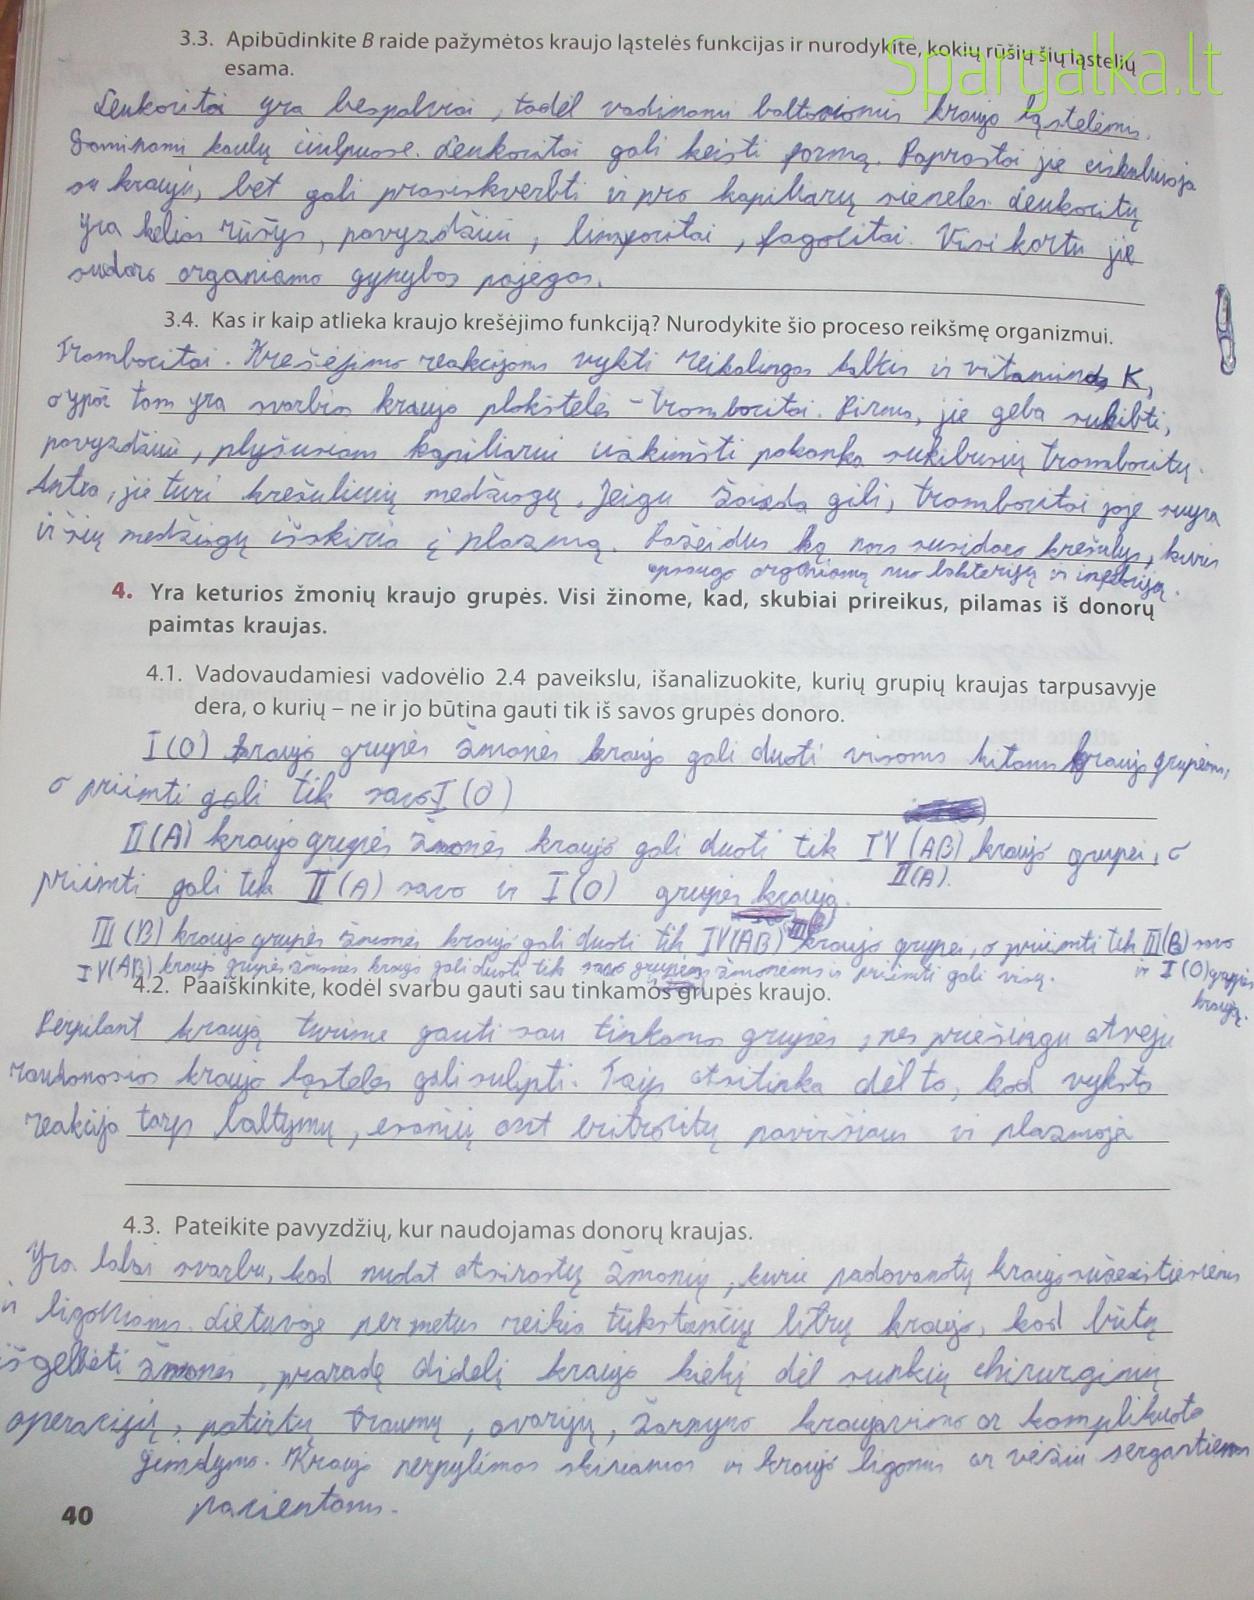 Spargalka.lt
3.3. Apibūdinkite B raide pažymėtos kraujo ląstelės funkcijas ir nurodykite, kokių rūšių šių ląstelių
esama.
Leukocitai yra bespalviai, todėl vadinami baltosiomis kraujo ląstelėmis.
Gaminami kaulų čiulpuose. Leukocitai gali keisti formą. Paprastai jie cirkuliuoja
su krauju, bet gali prasiskverbti ir pro kapiliarų sieneles. Leukocitų
yra kelios rūšys, pavyzdžiui, limfocitai, fagocitai. Visi kartu jie
sudaro organizmo gynybos pajėgas.
3.4. Kas ir kaip atlieka kraujo krešėjimo funkciją? Nurodykite šio proceso reikšmę organizmui.
Trombocitai. Krešėjimo reakcijoms vykti reikalingas kalcis ir vitaminas K,
o ypač tam yra svarbios kraujo plokštelės - trombocitai. Pirma, jie geba sukibti,
pavyzdžiui, plyšusiam kapiliarui užkimšti pakanka sukibusių trombocitų.
Antra, jie turi krešulinių medžiagų. Jeigu žaizda gili, trombocitai joje suyra
ir šių medžiagų išskiria į plazmą. Pažeidus ką nors susidaro krešulys, kuris
apsaugo organizmą nuo bakterijų ir infekcijų.
4. Yra keturios žmonių kraujo grupės. Visi žinome, kad, skubiai prireikus, pilamas iš donorų
paimtas kraujas.
4.1. Vadovaudamiesi vadovėlio 2.4 paveikslu, išanalizuokite, kurių grupių kraujas tarpusavyje
dera, o kurių – ne ir jo būtina gauti tik iš savos grupės donoro.
I (O) kraujo grupės žmonės kraujo gali duoti visoms kitoms kraujo grupėms,
o priimti gali tik savo I (O)
II (A) kraujo grupės žmonės kraujo gali duoti tik IV (AB) kraujo grupei, o
II (A).
priimti gali tik II (A) savo ir I (O) grupės kraują.
III (B) kraujo grupės žmonės kraujo gali duoti tik IV (AB) III (B) kraujo grupei, o priimti tik III (B) savo
ir I (O) grupės
kraują.
IV (AB) kraujo grupės žmonės kraujo gali duoti tik savo grupės žmonėms ir priimti gali visų.
4.2. Paaiškinkite, kodėl svarbu gauti sau tinkamos grupės kraujo.
Perpilant kraują turime gauti sau tinkamos grupės, nes priešingu atveju
raudonosios kraujo ląstelės gali sulipti. Taip atsitinka dėl to, kad vyksta
reakcija tarp baltymų, esančių ant eritrocitų paviršiaus ir plazmoje
4.3. Pateikite pavyzdžių, kur naudojamas donorų kraujas.
Yra labai svarbu, kad nuolat atsirastų žmonių, kurie padovanotų kraujo sužeistiesiems
ir ligoniams. Lietuvoje per metus reikia tūkstančių litrų kraujo, kad būtų
išgelbėti žmonės, praradę didelį kraujo kiekį dėl sunkių chirurginių
operacijų, patirtų traumų, avarijų, žarnyno kraujavimo ar komplikuoto
gimdymo. Kraujo perpylimas skiriamas ir kraujo ligomis ar vėžiu sergantiems
pacientams.
40